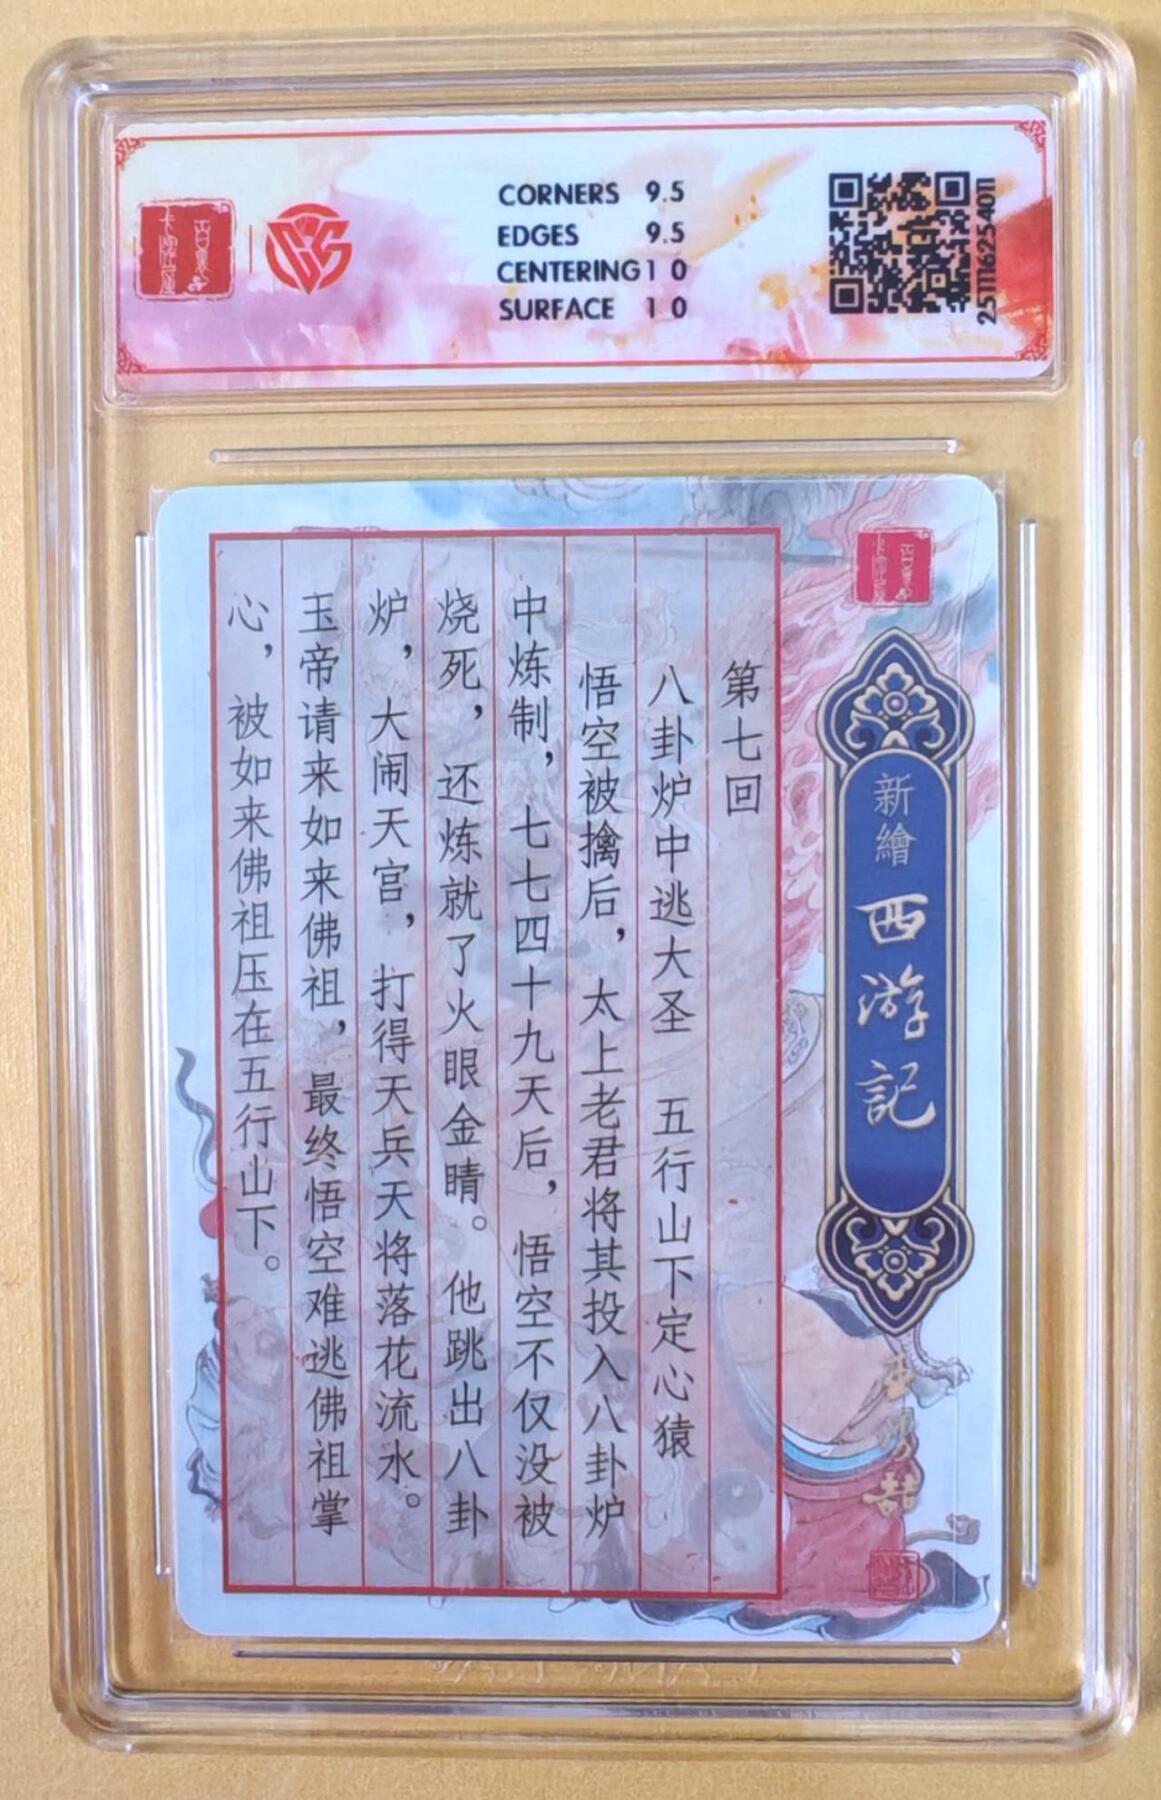 CORNERS 9.5
EDGES 9.5
CENTERING 10
SURFACE 10
251116254011
新繪
西游記
第七回
八卦炉中逃大圣 五行山下定心猿
悟空被擒后，太上老君将其投入八卦炉
中炼制，七七四十九天后，悟空不仅没被
烧死，还炼就了火眼金睛。他跳出八卦
炉，大闹天宫，打得天兵天将落花流水。
玉帝请来如来佛祖，最终悟空难逃佛祖掌
心，被如来佛祖压在五行山下。